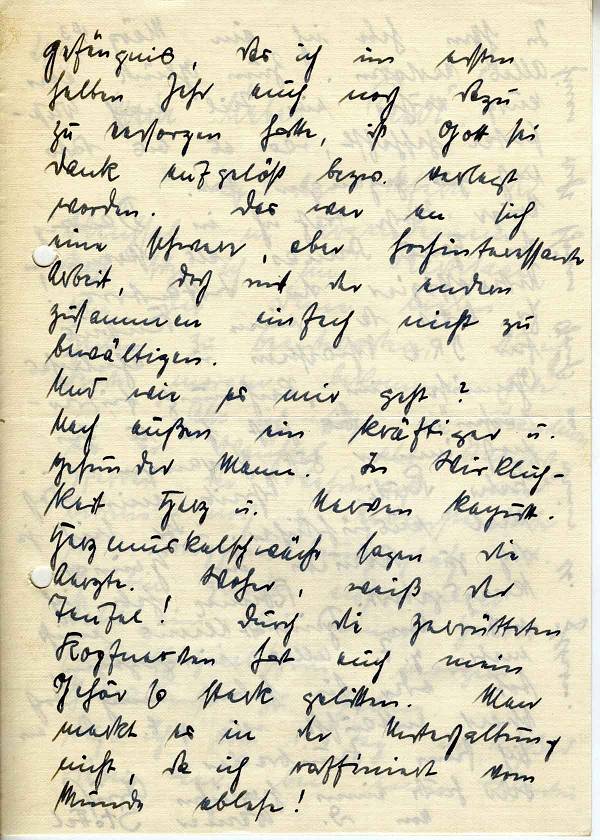 gefängnis, das ich im ersten
halben Jahr auch noch dazu
zu versorgen hatte, ist Gott sei
dank aufgelöst bezw. verlegt
worden. Das war an sich
eine schwere, aber hochinteressante
Arbeit, doch mit der andren
zusammen einfach nicht zu
bewältigen.
Und wie es mir geht?
Nach außen ein kräftiger u.
gesunder Mann. In Wirklich-
keit Herz u. Nerven kaputt.
Herzmuskelschwäche sagen die
Aerzte. Woher, weiß der
Teufel! Durch die zerrütteten
Kopfnerven hat auch mein
Gehör so stark gelitten. Man
merkt es in der Unterhaltung
nicht, da ich raffiniert vom
Munde ablese!